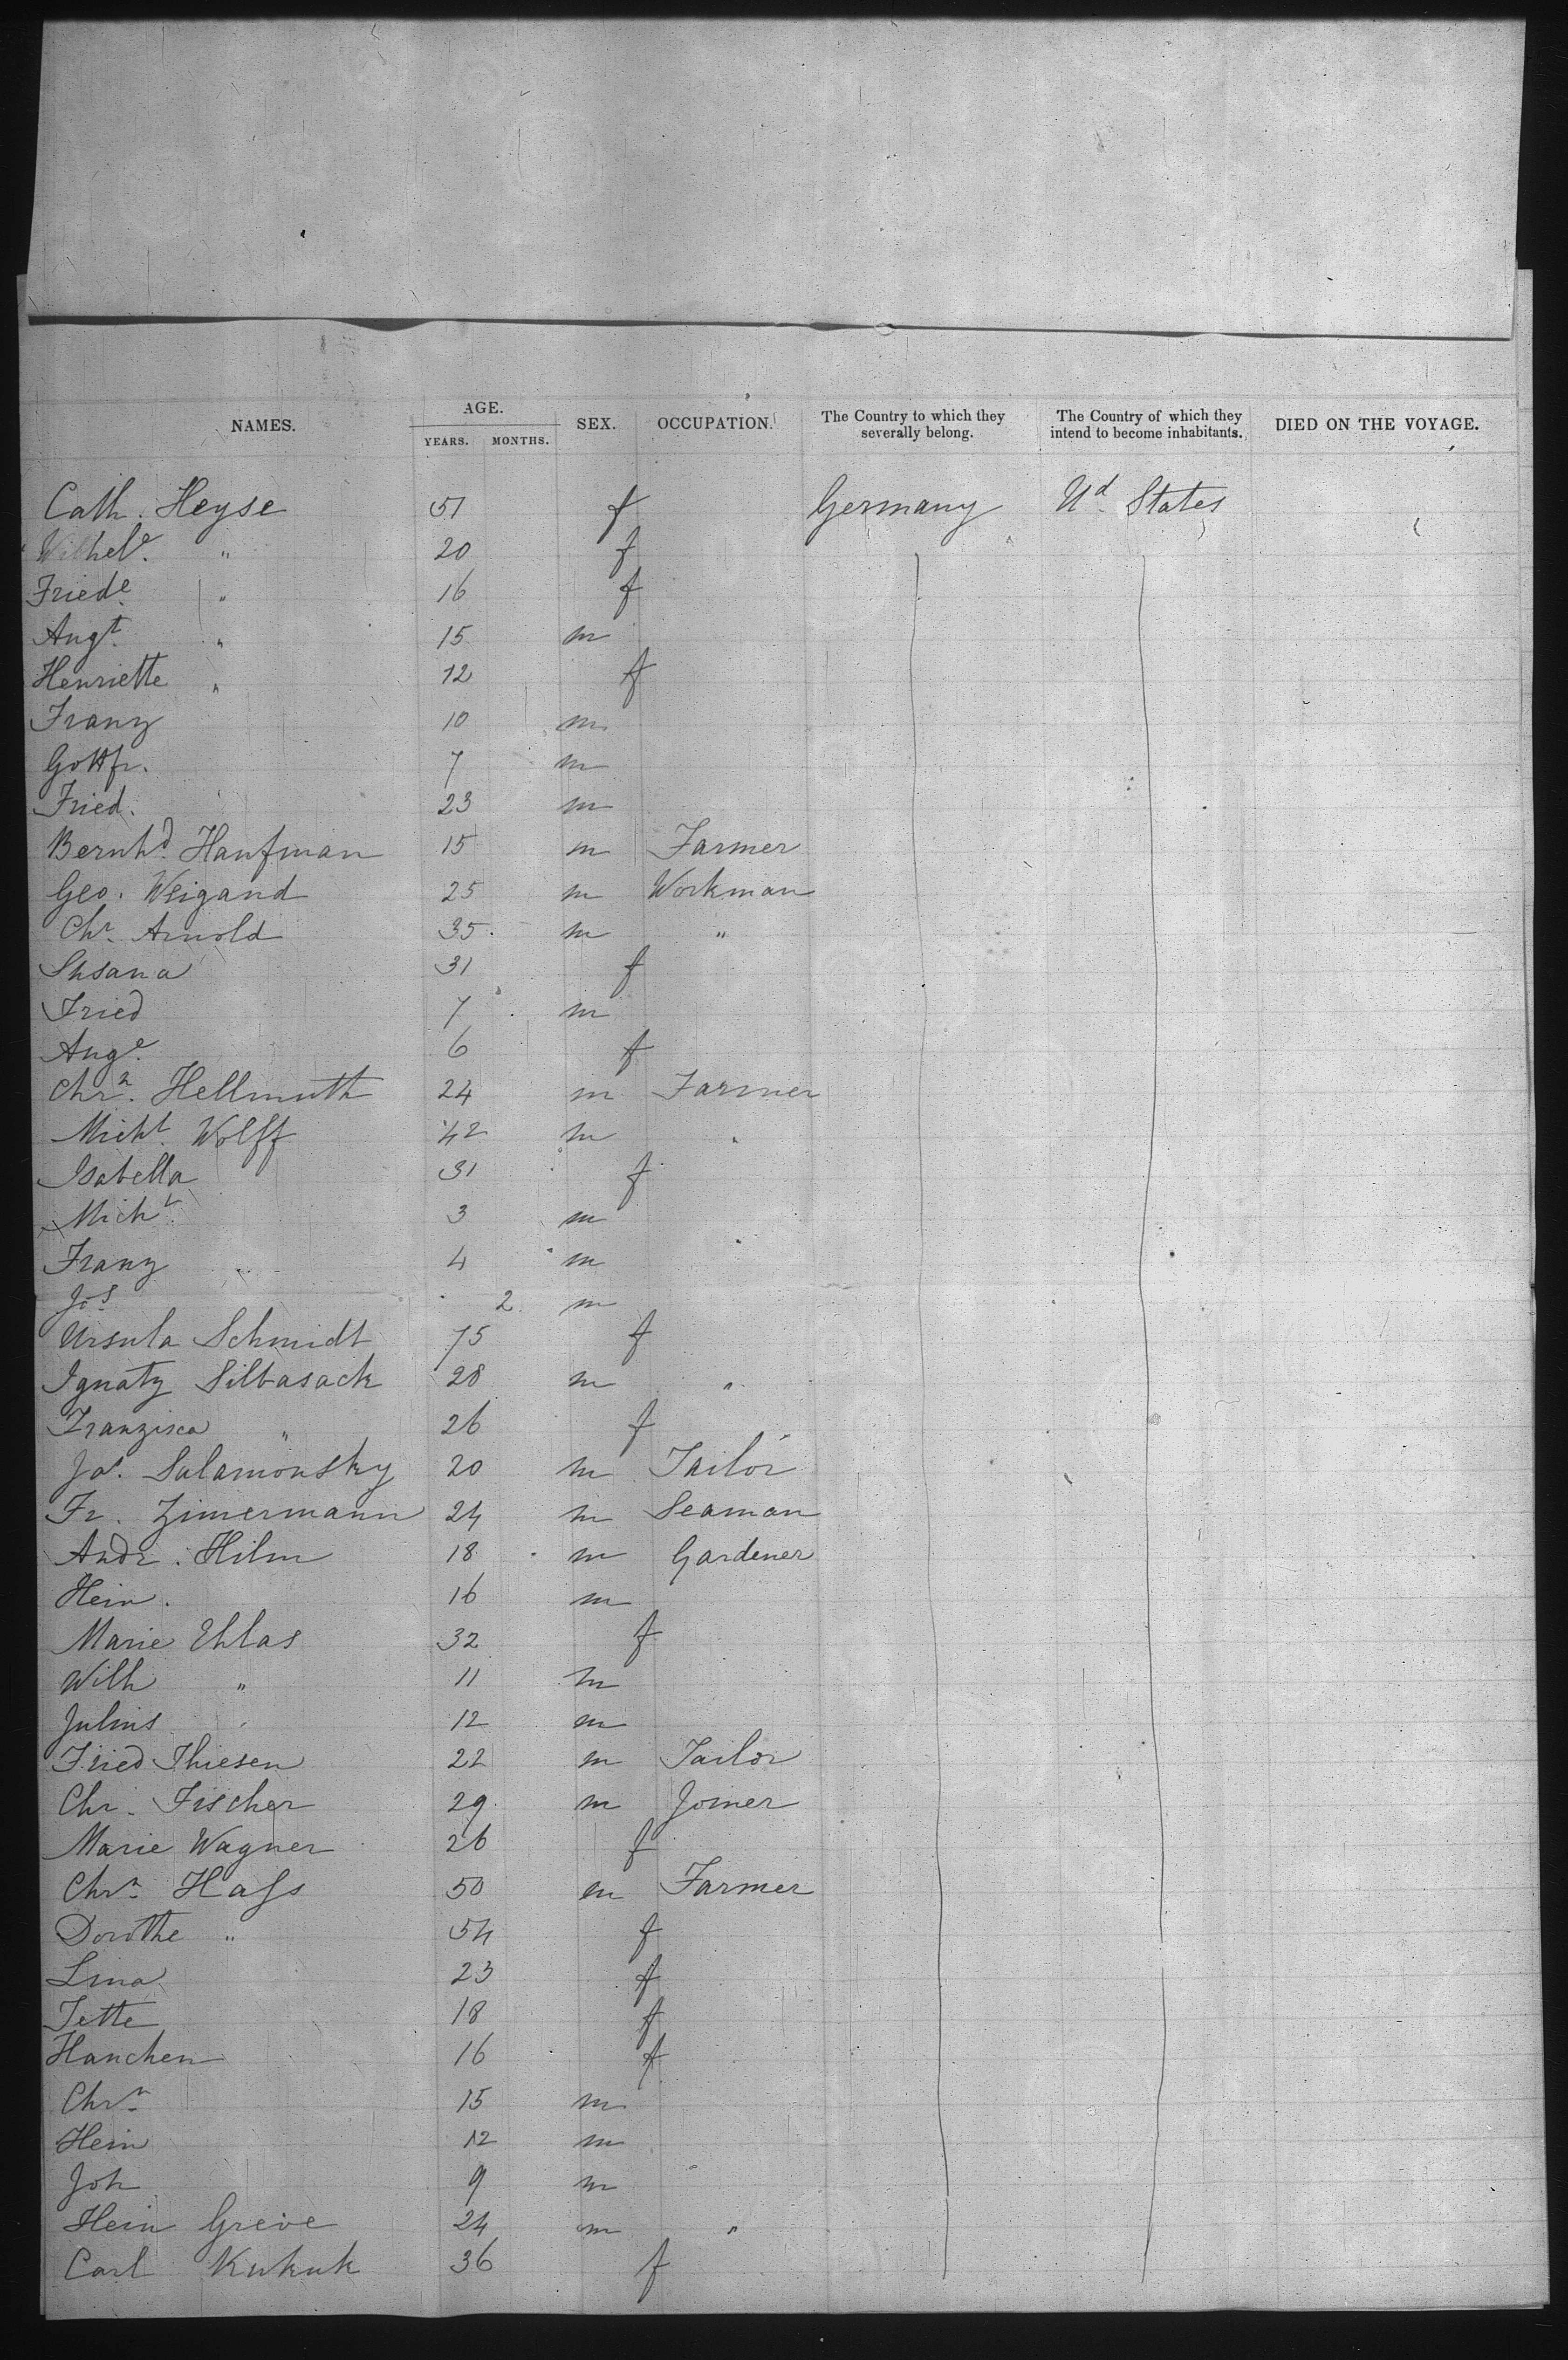 NAMES. AGE. YEARS. MONTHS. SEX. OCCUPATION. The Country to which they severally belong. The Country of which they intend to become inhabitants. DIED ON THE VOYAGE.
Cath. Heyse 51 f Germany Ud. States
Wilhele. " 20 f
Friede. " 16 f
Augt. " 15 m
Henriette " 12 f
Franz 10 m
Gottfr. 7 m
Fried. 23 m
Bernhd. Haufman 15 m Farmer
Geo. Weigand 25 m Workman
Chr. Arnold 35 m "
Shsana 31 f
Fried 7 m
Auge. 6 f
Chrn. Hellmuth 24 m Farmer
Michl. Wolff 42 m "
Isabella 31 f
Michl. 3 m
Franz 4 m
Jos 2 m
Ursula Schmidt 75 f
Ignatz Silbasack 28 m "
Franzisca " 26 f
Jos. Salamonsky 20 m Tailor
Fr. Zimermann 24 m Seaman
Andr. Hilm 18 m Gardener
Hein. 16 m
Marie Ehlas 32 f
Wilh " 11 m
Julius " 12 m
Fried Thiesen 22 m Tailor
Chr. Fischer 29 m Joiner
Marie Wagner 26 f
Chrn. Hass 50 m Farmer
Dorothe " 54 f
Lina 23 f
Jette 18 f
Hanchen 16 f
Chrn. 15 m
Hein 12 m
Joh 9 m
Hein Greve 24 m "
Carl Kukuk 36 f